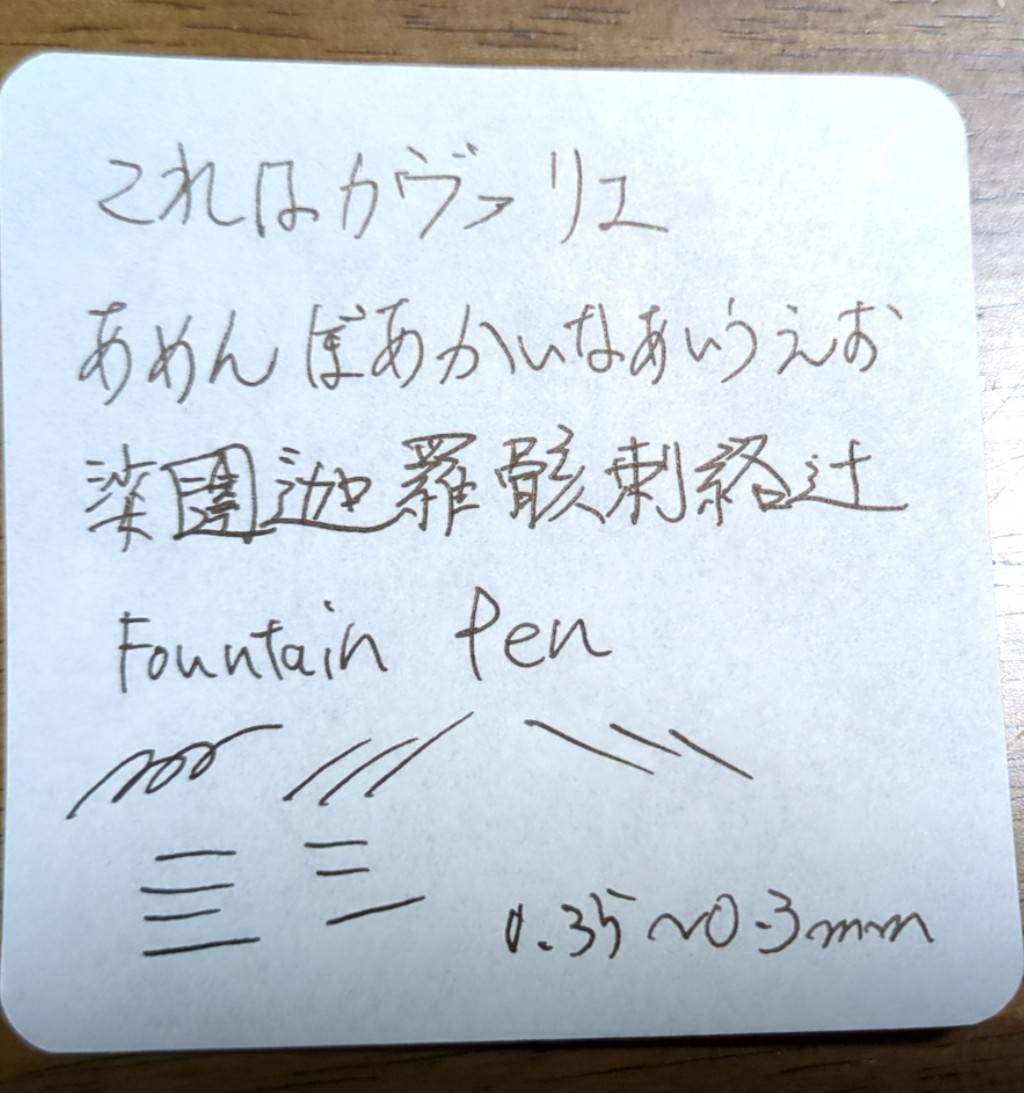 これはカヴァリエ
あめんぼあかいなあいうえお
迦羅骸刺絡辻
Fountain Pen
0.35~0.3mm